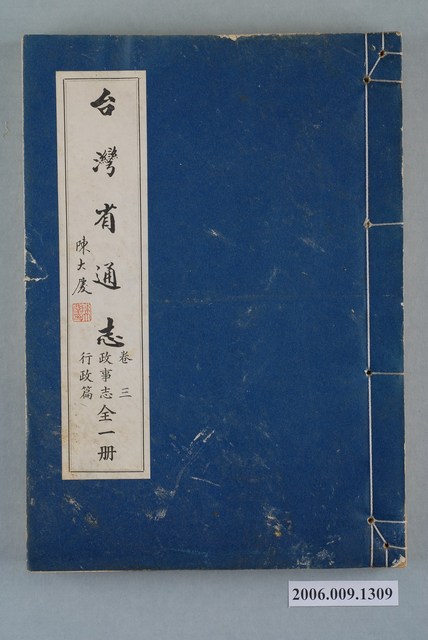 台灣省通志
卷三
政事志
行政篇
全一册
陳大慶
2006.009.1309